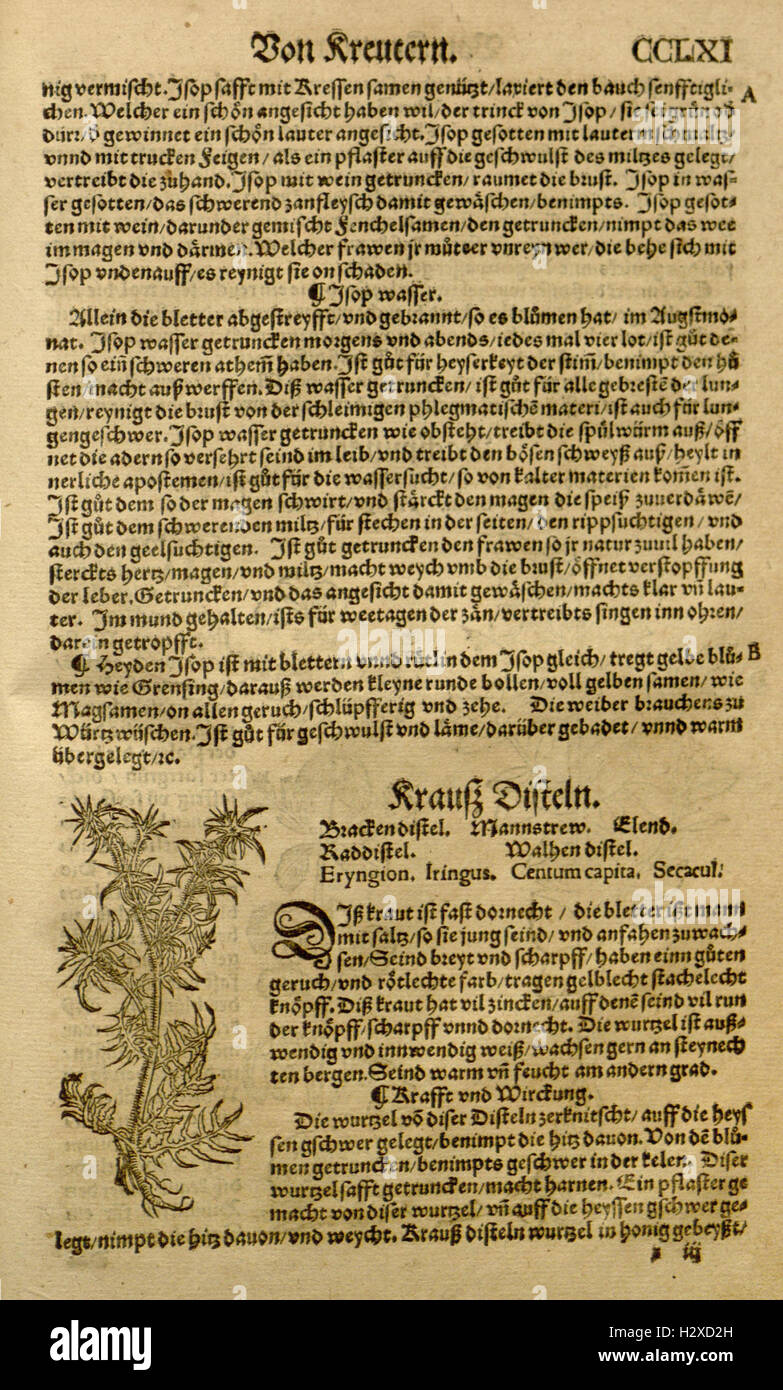 Von Kreutern. CCLXI
nig vermischt. Isop safft mit Kressen samen genützt/laxiert den bauch senfftigli- A
chen. Welcher ein schön angesicht haben wil/der trinck von Isop/
dürr/ gewinnet ein schön lauter angesicht. Isop gesotten mit lauter
vnnd mit trucken Feigen/als ein pflaster auff die geschwulst des miltzes gelegt/
vertreibt die zuhand. Isop mit wein getruncken/raumet die brust. Isop in was-
ser gesotten/das schwerend zanfleysch damit gewäschen/benimpts. Isop gesot-
ten mit wein/darunder gemischt Fenchelsamen/den getruncken/nimpt das wee
im magen vnd därmen. Welcher frawen jr můtter vnreyn wer/die behe sich mit
Isop vnden auff/es reynigt sie on schaden.
¶ Isop wasser.
Allein die bletter abgestreyfft/vnd gebrannt/so es blůmen hat/im Augstmo-
nat. Isop wasser getruncken morgens vnd abends/iedes mal vier lot/ist gůt de-
nen so ein̄ schweren athem̄ haben. Ist gůt für heyserkeyt der stim̄/benimpt den hů
sten/macht außwerffen. Diß wasser getruncken/ist gůt für alle gebrestē der lun-
gen/reynigt die brust von der schleimigen phlegmatischē materi/ist auch für lun-
gengeschwer. Isop wasser getruncken wie obsteht/treibt die spůlwürm auß/öff
net die adern so versehrt seind im leib/vnd treibt den bösen schweyß auß/heylt in
nerliche apostemen/ist gůt für die wassersucht/so von kalter materien kom̄en ist.
Ist gůt dem so der magen schwirt/vnd stärckt den magen die speiß zuuerdäwē/
Ist gůt dem schwerenden miltz/für stechen in der seiten/den rippsüchtigen/vnd
auch den geelsuchtigen. Ist gůt getruncken den frawen so jr natur zuuil haben/
sterckts hertz/magen/vnd miltz/macht weych vmb die brust/öffnet verstopffung
der leber. Getruncken/vnd das angesicht damit gewäschen/machts klar vn̄ lau-
ter. Im mund gehalten/ists für weetagen der zän/vertreibts singen inn ohren/
darein getropfft.
¶ Heyden Isop ist mit blettern vnnd in dem Isop gleich/tregt gelbe blů- B
men wie Grensing/darauß werden kleyne runde bollen/voll gelben samen/wie
Magsamen/on allen geruch/schlüpfferig vnd zehe. Die weiber brauchens zu
Würtzwüschen. Ist gůt für geschwulst vnd läme/darüber gebadet/vnnd warm
übergelegt/ꝛc.
Krauß Disteln.
Bracken distel. Mannstrew. Elend.
Raddistel. Walhen distel.
Eryngion. Iringus. Centum capita. Secacul.
Diß kraut ist fast dornecht/die bletter ißt mann
mit saltz/so sie jung seind/vnd anfahen zuwach-
sen/Seind breyt vnd scharpff/haben einn gůten
geruch/vnd rötlechte farb/tragen gelblecht stachelecht
knöpff. Diß kraut hat vil zincken/auff denē seind vil run
der knöpff/scharpff vnnd dornecht. Die wurtzel ist auß-
wendig vnd innwendig weiß/wachsen gern an steynech
ten bergen. Seind warm vn̄ feucht am andern grad.
¶ Krafft vnd Wirckung.
Die wurtzel vō diser Disteln zerknitscht/auff die heys
sen gschwer gelegt/benimpt die hitz dauon. Von dē blů-
men getruncken/benimpts geschwer in der kelen. Diser
wurtzel safft getruncken/macht harnen. Ein pflaster ge
macht von diser wurtzel/vn̄ auff die heyssen gschwer ge-
legt/nimpt die hitz dauon/vnd weycht. Krauß disteln wurtzel in honig gebeyßt/
iij
alamy stock photo
alamy
Image ID: H2XD2H
www.alamy.com